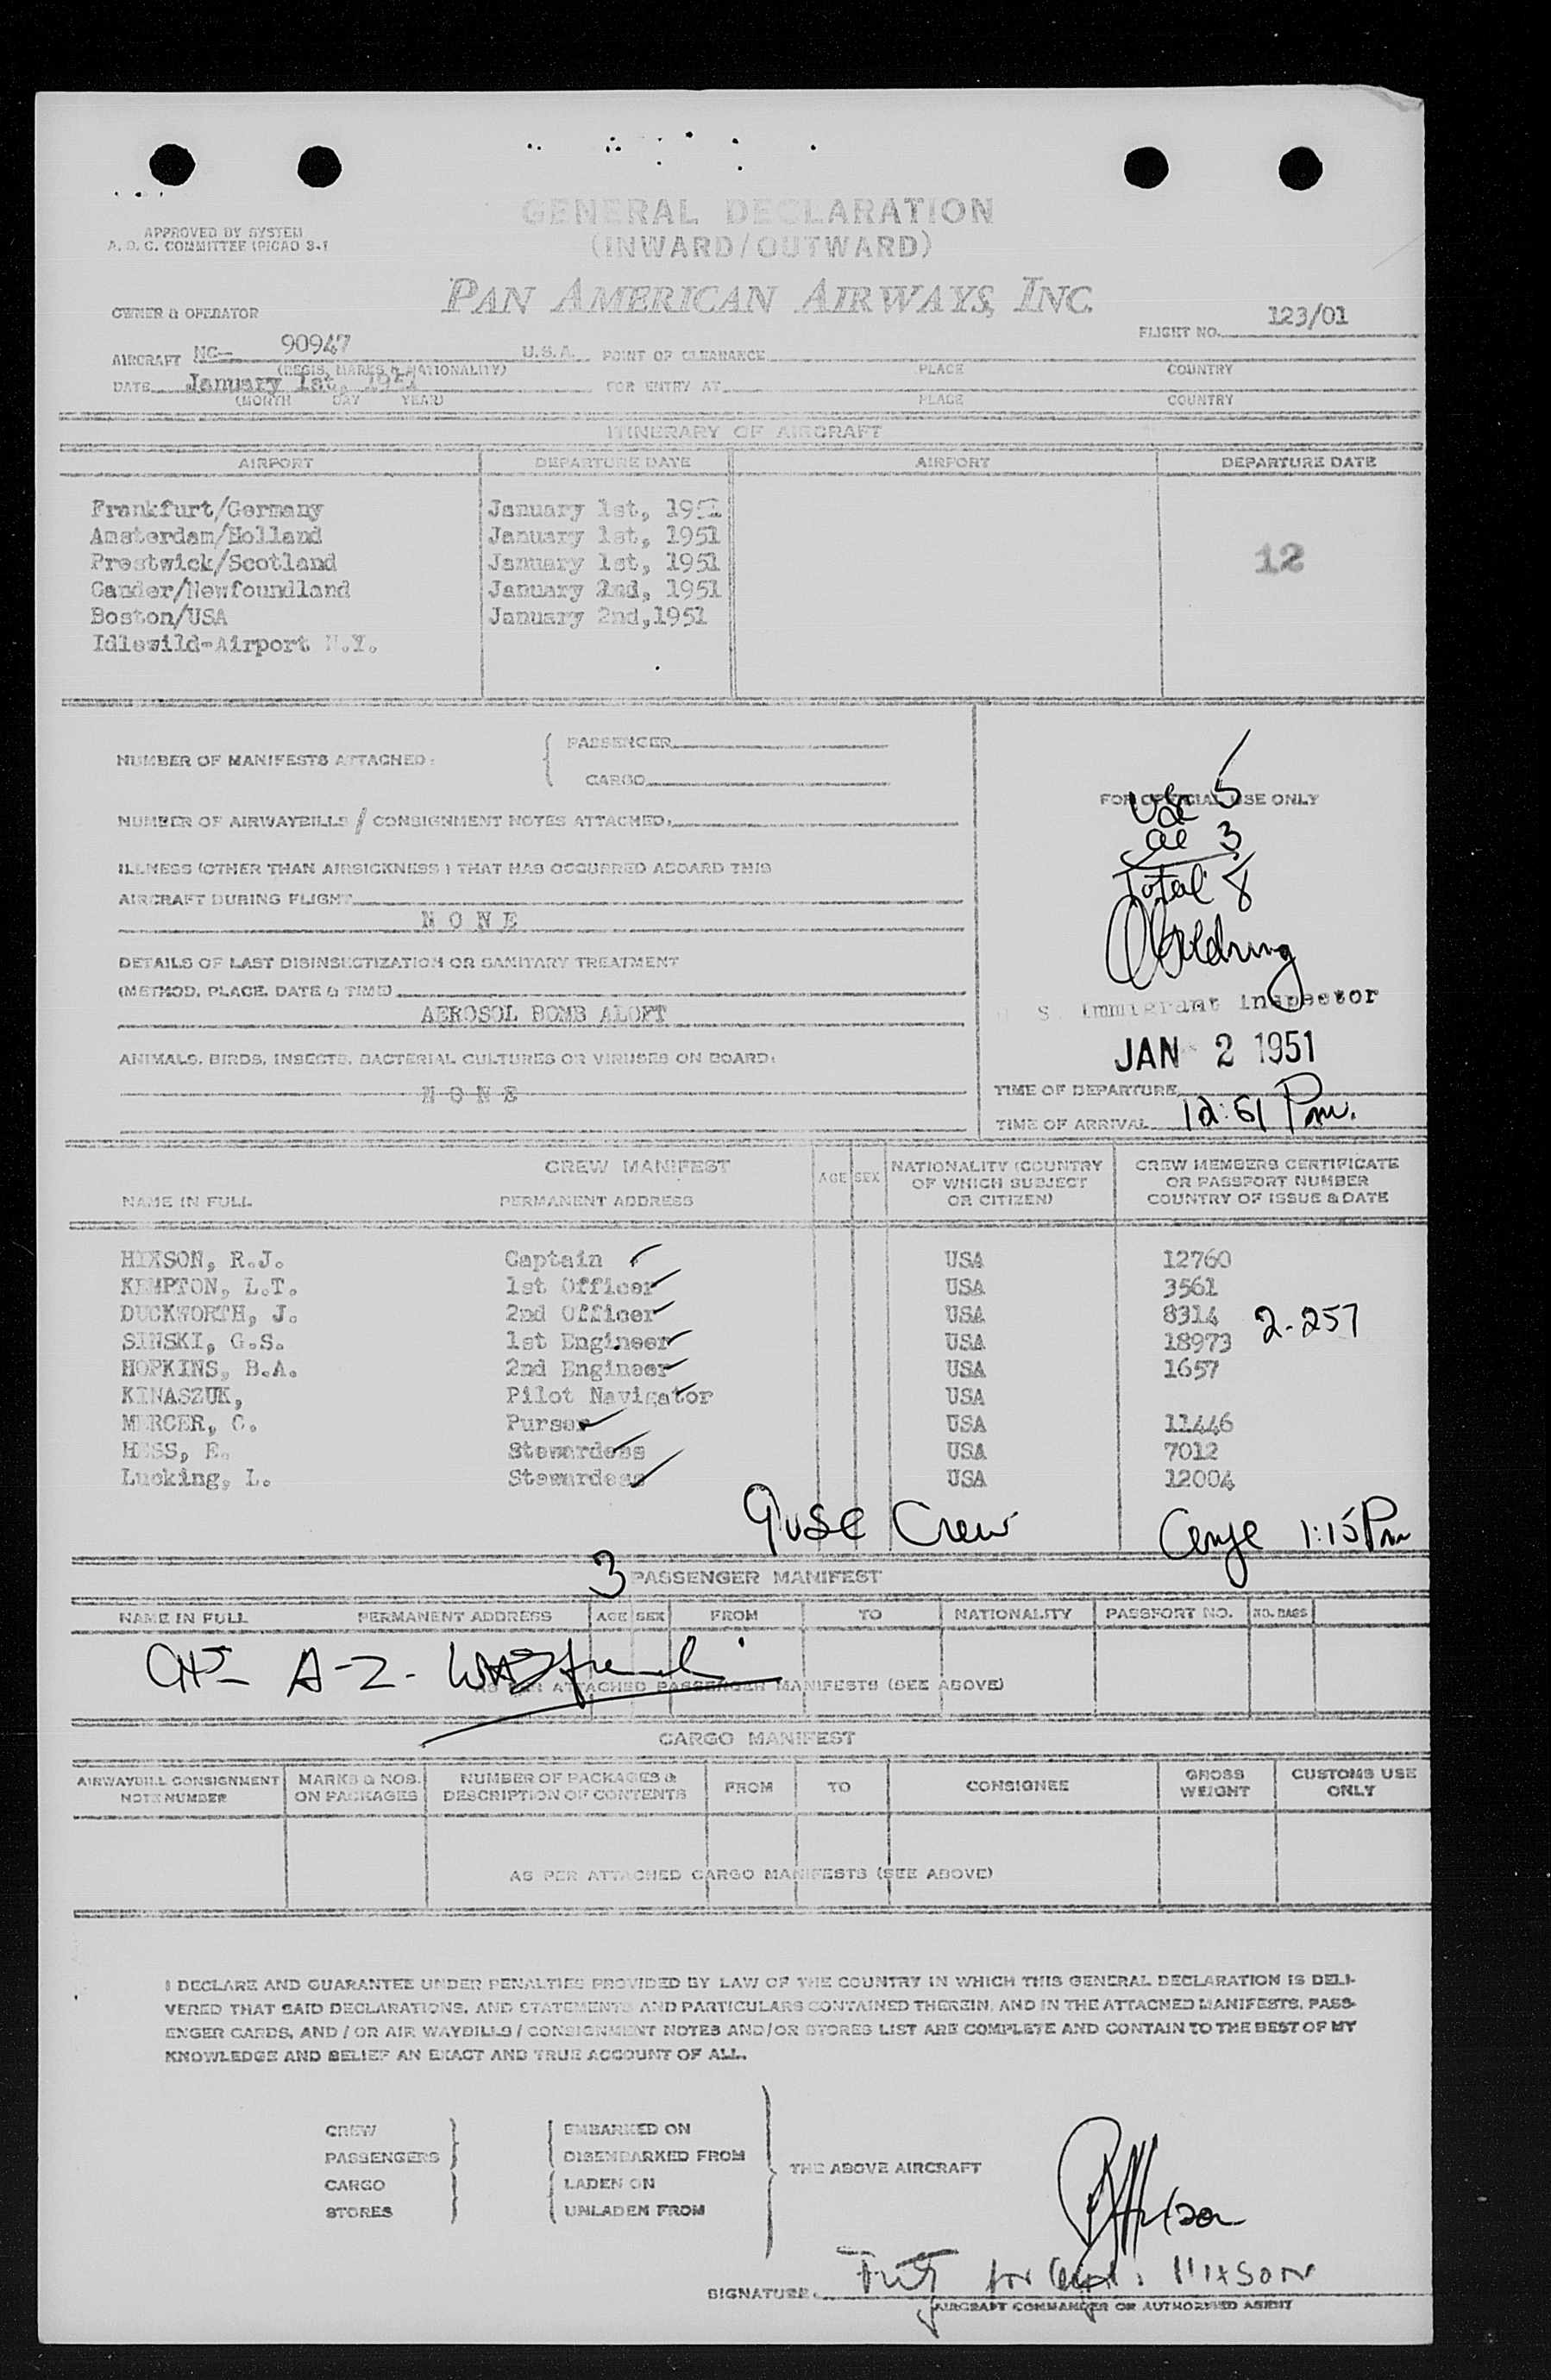 GENERAL DECLARATION
(INWARD/OUTWARD)
APPROVED BY SYSTEM
A. D. C. COMMITTEE (PICAO S-1
PAN AMERICAN AIRWAYS, INC.
OWNER & OPERATOR
FLIGHT NO. 123/01
AIRCRAFT NC- 90947 U.S.A. POINT OF CLEARANCE
(REGIS. MARKS & NATIONALITY) PLACE COUNTRY
DATE January 1st, 1951 FOR ENTRY AT
(MONTH DAY YEAR) PLACE COUNTRY
ITINERARY OF AIRCRAFT
AIRPORT DEPARTURE DATE AIRPORT DEPARTURE DATE
Frankfurt/Germany January 1st, 1951
Amsterdam/Holland January 1st, 1951
Prestwick/Scotland January 1st, 1951
12
Gander/Newfoundland January 2nd, 1951
Boston/USA January 2nd,1951
Idlewild-Airport N.Y.
NUMBER OF MANIFESTS ATTACHED: PASSENGER
CARGO
NUMBER OF AIRWAYBILLS / CONSIGNMENT NOTES ATTACHED:
ILLNESS (OTHER THAN AIRSICKNESS) THAT HAS OCCURRED ABOARD THIS
AIRCRAFT DURING FLIGHT
NONE
DETAILS OF LAST DISINSECTIZATION OR SANITARY TREATMENT
(METHOD, PLACE, DATE & TIME)
AEROSOL BOMB ALOFT
ANIMALS, BIRDS, INSECTS, BACTERIAL CULTURES OR VIRUSES ON BOARD:
NONE
FOR OFFICIAL USE ONLY
USC 5
al 3
Total 8
U. S. Immigrant Inspector
JAN 2 1951
TIME OF DEPARTURE
TIME OF ARRIVAL 12:51 Pm.
CREW MANIFEST
NAME IN FULL PERMANENT ADDRESS AGE SEX NATIONALITY (COUNTRY OF WHICH SUBJECT OR CITIZEN) CREW MEMBERS CERTIFICATE OR PASSPORT NUMBER COUNTRY OF ISSUE & DATE
HIXSON, R.J. Captain USA 12760
KEMPTON, L.T. 1st Officer USA 3561
DUCKWORTH, J. 2nd Officer USA 8314 2-257
SINSKI, G.S. 1st Engineer USA 18973
HOPKINS, B.A. 2nd Engineer USA 1657
KINASZUK, Pilot Navigator USA
MERCER, C. Purser USA 11446
HESS, E. Stewardess USA 7012
Lucking, L. Stewardess USA 12004
9 USC Crew 1:15 Pm
3 PASSENGER MANIFEST
NAME IN FULL PERMANENT ADDRESS AGE SEX FROM TO NATIONALITY PASSPORT NO. NO. BAGS
A-2-
AS PER ATTACHED PASSENGER MANIFESTS (SEE ABOVE)
CARGO MANIFEST
AIRWAYBILL CONSIGNMENT NOTE NUMBER MARKS & NOS. ON PACKAGES NUMBER OF PACKAGES & DESCRIPTION OF CONTENTS FROM TO CONSIGNEE GROSS WEIGHT CUSTOMS USE ONLY
AS PER ATTACHED CARGO MANIFESTS (SEE ABOVE)
I DECLARE AND GUARANTEE UNDER PENALTIES PROVIDED BY LAW OF THE COUNTRY IN WHICH THIS GENERAL DECLARATION IS DELI-
VERED THAT SAID DECLARATIONS, AND STATEMENTS AND PARTICULARS CONTAINED THEREIN, AND IN THE ATTACHED MANIFESTS, PASS-
ENGER CARDS, AND / OR AIR WAYBILLS / CONSIGNMENT NOTES AND/OR STORES LIST ARE COMPLETE AND CONTAIN TO THE BEST OF MY
KNOWLEDGE AND BELIEF AN EXACT AND TRUE ACCOUNT OF ALL.
CREW EMBARKED ON
PASSENGERS DISEMBARKED FROM
THE ABOVE AIRCRAFT
CARGO LADEN ON
STORES UNLADEN FROM
RJHixson
SIGNATURE: for Capt. HIXSON
AIRCRAFT COMMANDER OR AUTHORISED AGENT